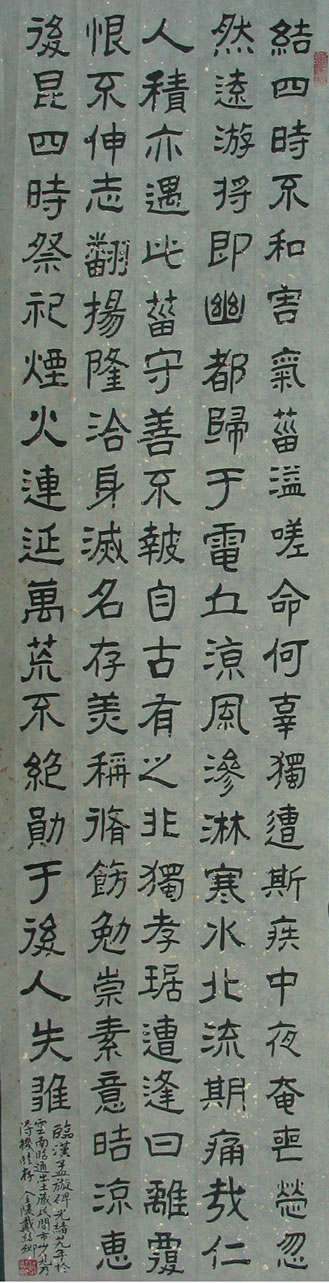 結四時不和害氣菑溢嗟命何辜獨遭斯疾中夜奄喪煢忽
然遠游將即幽都歸于電丘涼風滲淋寒水北流期痛哉仁
人積亦遇此菑守善不報自古有之非獨孝琚遭逢曰離覆
恨不伸志翻揚隆洽身滅名存美稱脩飭勉崇素意晧涼惠
後昆四時祭祀煙火連延萬荒不絕勛于後人失雖
臨漢孟琁碑光緒九年於
雲南昭通出土
金陵戴